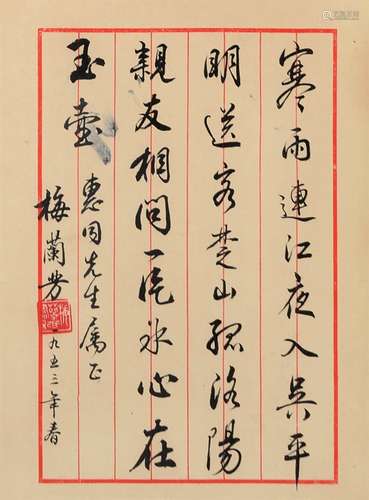 寒雨連江夜入吳平
明送客楚山孤洛陽
親友相問一片冰心在
玉壺
惠同先生屬正
梅蘭芳
一九五三年春